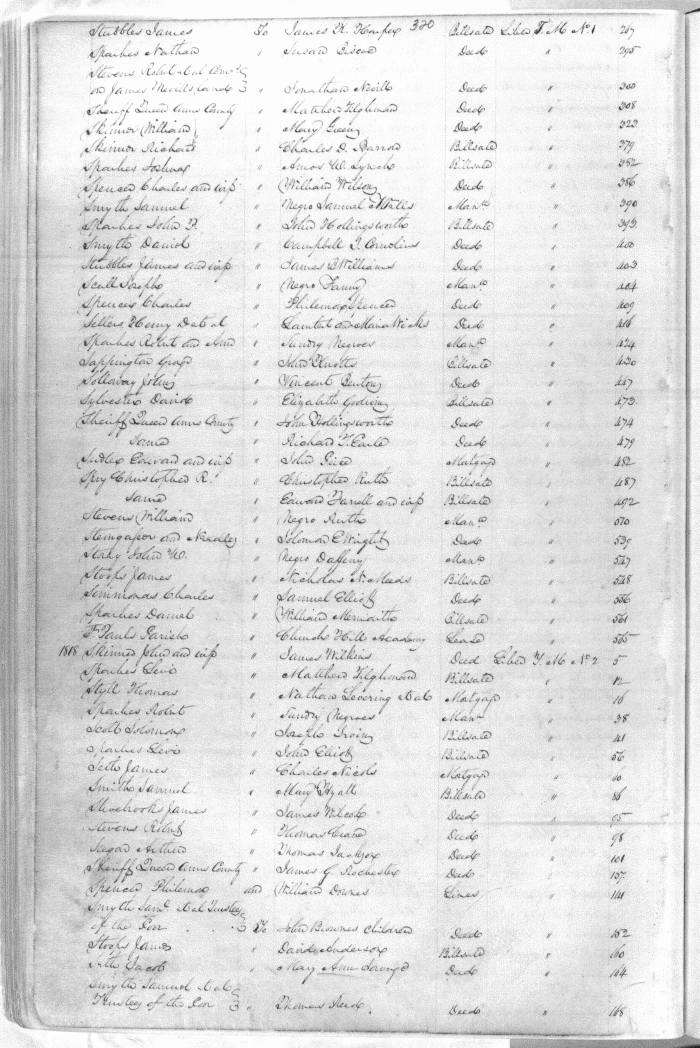 320
Stubbles James To James K. Harper Billsale Liber T. M No 1 267
Sparkes Nathan " Susan Discon Deed " 295
Stevens Robt
on James " Jonathan Nevill Deed " 300
Sheriff Queen Anns County " Matthew Tilghman Deed " 308
Skinner William " Mary Green Deed " 323
Skinner Richard " Charles D. Barrow Billsale " 379
Sparkes Joshua " Amos W. Lynch Billsale " 382
Spencer Charles and wife " William Wilson Deed " 386
Smyth Samuel " Negro Samuel Man " 390
Sparkes John F. " John Hollingsworth Billsale " 393
Smyth Daniel " Campbell Deed " 400
Stubbles James and wife " James B Williams Deed " 403
Scull Joseph " Negro Fanny Man " 404
Spencer Charles " Philemon Spencer Deed " 409
Sellers Henry D et al " Lambert and Maria Deed " 416
Sparkes Robt and Ann " Sundry Negroes Man " 424
Sappington " John Knotts Billsale " 430
Sollaway John " Vincent Benton Deed " 447
Sylvester David " Elizabeth Godwin Billsale " 473
Sheriff Queen Anns County " John Hollingsworth Deed " 474
Same " Richard T. Earle Deed " 479
Sudler Edward and wife " John Mortgage " 482
Spry Christopher R. " Christopher Ruth Billsale " 487
Same " Edward Farrell and wife Billsale " 492
Stevens William " Negro Ruth Man " 510
and " Solomon E Wright Deed " 539
John W. " Negro Daffeny Man " 547
Stoops James " Nicholas N. Meeds Billsale " 548
Simmonds Charles " Samuel Elliott Deed " 556
Sparkes Daniel " William Meredith Billsale " 561
St Pauls Parish " Church Hill Academy Lease " 565
1818 Skinner John and wife " James Wilkins Deed Liber T. M No 2 5
Sparkes Levi " Matthew Tilghman Billsale " 12
Thomas " Nathan Levering & al Mortgage " 16
Sparkes Robt " Sundry Negroes Man " 38
Scott Solomon " Joseph Irvin Billsale " 41
Sparkes Levi " John Elliott Billsale " 56
Seth James " Charles Nicols Mortgage " 60
Smith Samuel " Mary Hyatt Billsale " 86
James " James Wilcox Deed " 95
Stevens Robt " Thomas Crane Deed " 98
Segar Arthur " Thomas Jackson Deed " 101
Sheriff Queen Anns County " James G. Rochester Deed " 137
Spencer Philemon and William Downes Lines " 141
Smyth Saml & al Trustees
of the Poor To John Brownes children Deed " 152
Stoops James " David Anderson Billsale " 160
Seth Jacob " Mary Ann Deed " 164
Smyth Samuel & al
Trustees of the Poor " Thomas Reed. Deed " 168